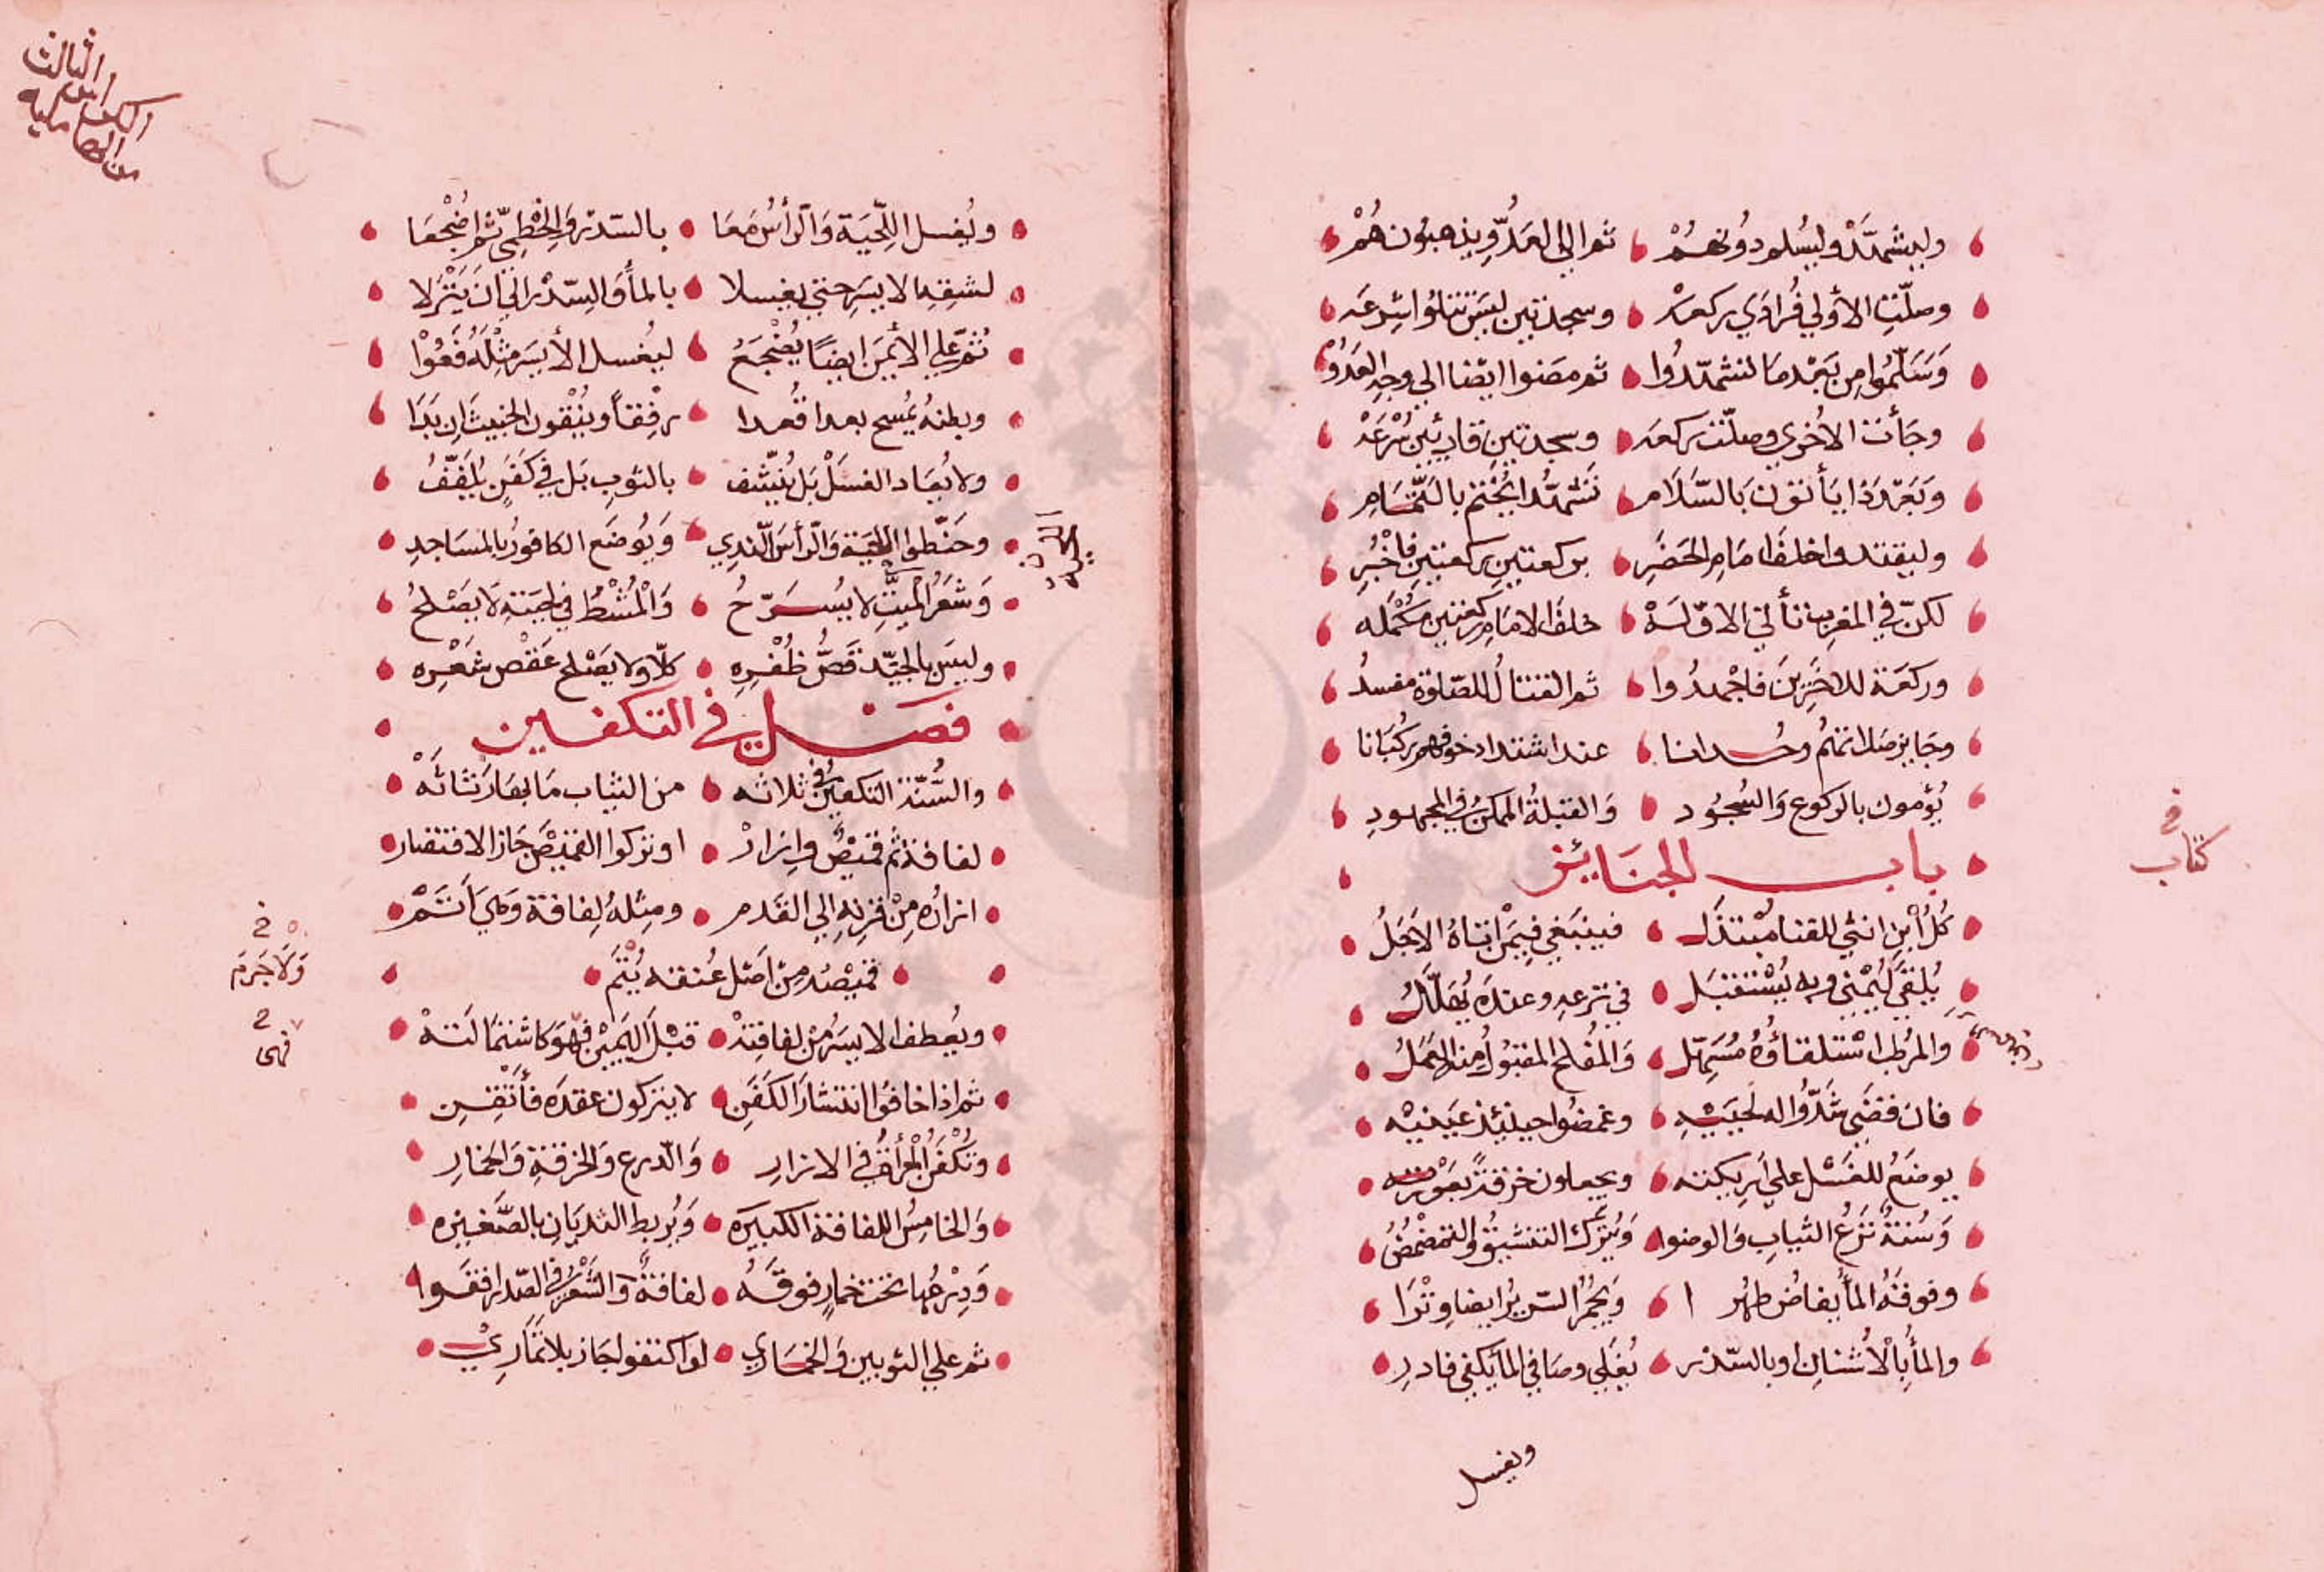 وليتشهد وليسلم دونهم ثم الى العدو يذهبون هم
وصلت الأولي فرادي ركعه وسجدتين ليس تتلوا شرعه
وسلموا من بعد ما تشهدوا ثم مضوا ايضا الى وجه العدو
وجأت الاخري وصلت ركعه وسجدتين قارئين شرعه
وبعد ذا يأتون بالسلام تشهدا يختم بالتمام
وليقتدوا خلف امام الحضر بركعتين ركعتين فاخبر
لكن في المغرب تأتي الاوله خلف الامام ركعتين مكمله
وركعة للاخرين فاجهدوا ثم القتال للصلوة مفسد
وجايز صلاتهم وحدانا عند اشتداد خوفهم ركبانا
يؤمون بالركوع والسجود والقبلة الممكن في المجهود
باب الجنائز
في
كتاب
كل ابن انثي للفنا مبتذل فينبغي فيمن اتاه الاجل
يلقى ليمني وبه يستقبل في نزعه وعنده يهلل
والمرط استلقاؤه مسهل والمفلح المقبول منه العمل
فان قضى شدوا له لحييه وغمضوا حينئذ عينيه
يوضع للغسل علي اريكته ويجعلون خرقة بعورته
وسنة نزع الثياب والوضوا ويترك التنشيق والتمضمض
وفوقه المأ يفاض طهرا ويجمر السرير ايضا وترا
والمأ بالأشنان او بالسدر يغلي وصافي الما يكفي فادر
ويغسل
الثالث
الكراس
من
ويغسل اللحية والرأس معا بالسدر والخطمي ثم اضجعا
لشقه الايسر حتي يغسلا بالمأ والسدر الى ان ينزلا
ثم علي الأيمن ايضا يضجع ليغسل الأيسر مثله فعوا
وبطنه يمسح بعد اقعدا رفقا وينقون الخبيث ان بدا
ولا يعاد الغسل بل ينشف بالثوب بل في كفن يلفف
وحنطوا اللحية والرأس الندي ويوضع الكافور بالمساجد
وشعر الميت لا يسرح والمشط في لحيته لا يصلح
وليس بالجيد قص ظفره كلا ولا يصلح عقص شعره
فصل في التكفين
والسنة التكفين في ثلاثه من الثياب ما بها رثاثه
لفافة ثم قميص وازار او تركوا القميص جاز الاقتصار
ازاره من قرنه الى القدم ومثله لفافة وهي اتم
ولا جرم
قميصه من اصل عنقه يتم
ويعطف الايسر من لفافته قبل اليمين فهو كاشتمالته
فهي
ثم اذا خافوا انتشار الكفن لا يتركون عقده فأتقن
وتكفن المرأة في الازار والدرع والخرقة والخمار
والخامس اللفافة الكبيره ويربط الثديان بالصغيره
ودرعها تحت خمار فوقه لفافة والشعر في الصدر ارفقوا
ثم علي الثوبين والخمار لو اكتفوا جاز بلا تماري